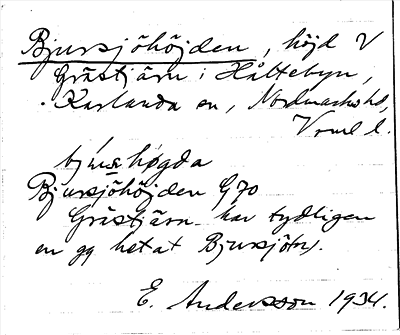 Bjursjöhöjden, höjd V
Grästjärn i Håltebyn,
Karlanda sn, Nordmarks hd,
Vrml l.
högda
Bjursjöhöjden G70
Grästjärn har tydligen
en gg hetat Bjursjön.
E. Andersson 1934.